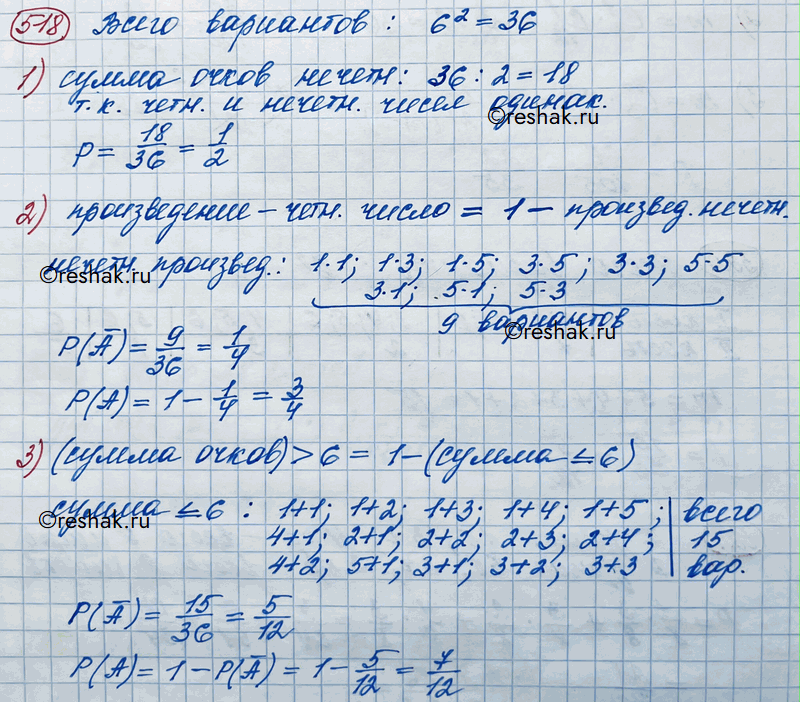 518 Всего вариантов : 6² = 36
1) сумма очков нечетн: 36 : 2 = 18
т.к. четн. и нечетн. чисел одинак.
©reshak.ru
P = 18/36 = 1/2
2) произведение – четн. число = 1 – произвед. нечетн.
нечетн. произвед.: 1·1; 1·3; 1·5; 3·5; 3·3; 5·5
©reshak.ru
3·1; 5·1; 5·3
9 вариантов
©reshak.ru
P(Ā) = 9/36 = 1/4
P(A) = 1 – 1/4 = 3/4
3) (сумма очков) > 6 = 1 – (сумма ≤ 6)
сумма ≤ 6 : 1+1; 1+2; 1+3; 1+4; 1+5; | всего
©reshak.ru
4+1; 2+1; 2+2; 2+3; 2+4; | 15
4+2; 5+1; 3+1; 3+2; 3+3 | вар.
P(Ā) = 15/36 = 5/12
P(A) = 1 – P(Ā) = 1 – 5/12 = 7/12